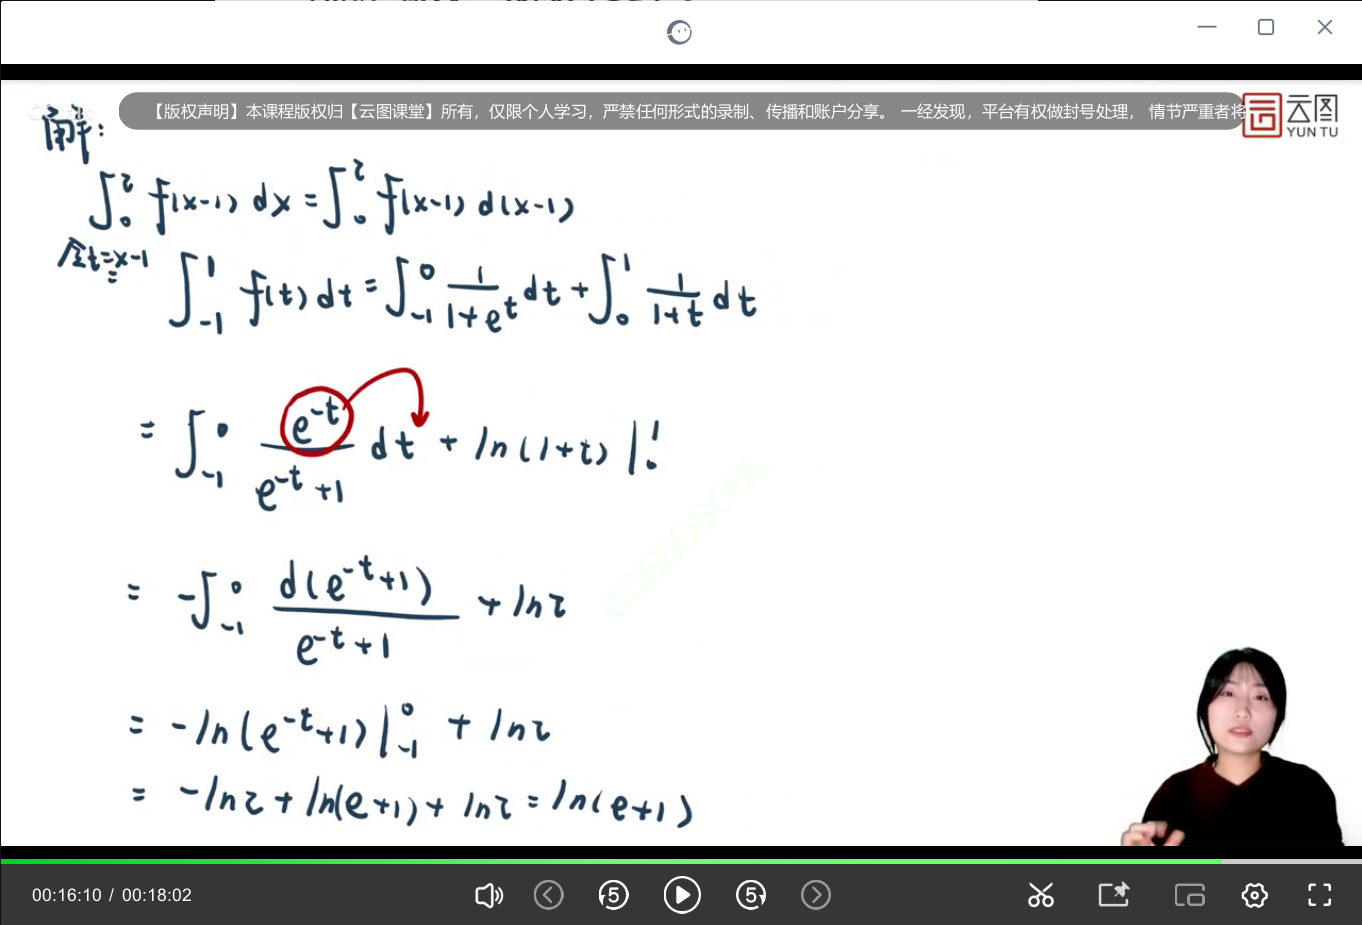 【版权声明】本课程版权归【云图课堂】所有，仅限个人学习，严禁任何形式的录制、传播和账户分享。 一经发现，平台有权做封号处理， 情节严重者将
云图
YUN TU
解：
∫₀² f(x-1) dx = ∫₀² f(x-1) d(x-1)
令t=x-1
= ∫₋₁¹ f(t) dt = ∫₋₁⁰ 1/(1+eᵗ) dt + ∫₀¹ 1/(1+t) dt
= ∫₋₁⁰ e⁻ᵗ/(e⁻ᵗ+1) dt + ln(1+t) |₀¹
= -∫₋₁⁰ d(e⁻ᵗ+1)/(e⁻ᵗ+1) + ln2
= -ln(e⁻ᵗ+1)|₋₁⁰ + ln2
= -ln2 + ln(e+1) + ln2 = ln(e+1)
CUEDDSOUL
00:16:10 / 00:18:02
5 5